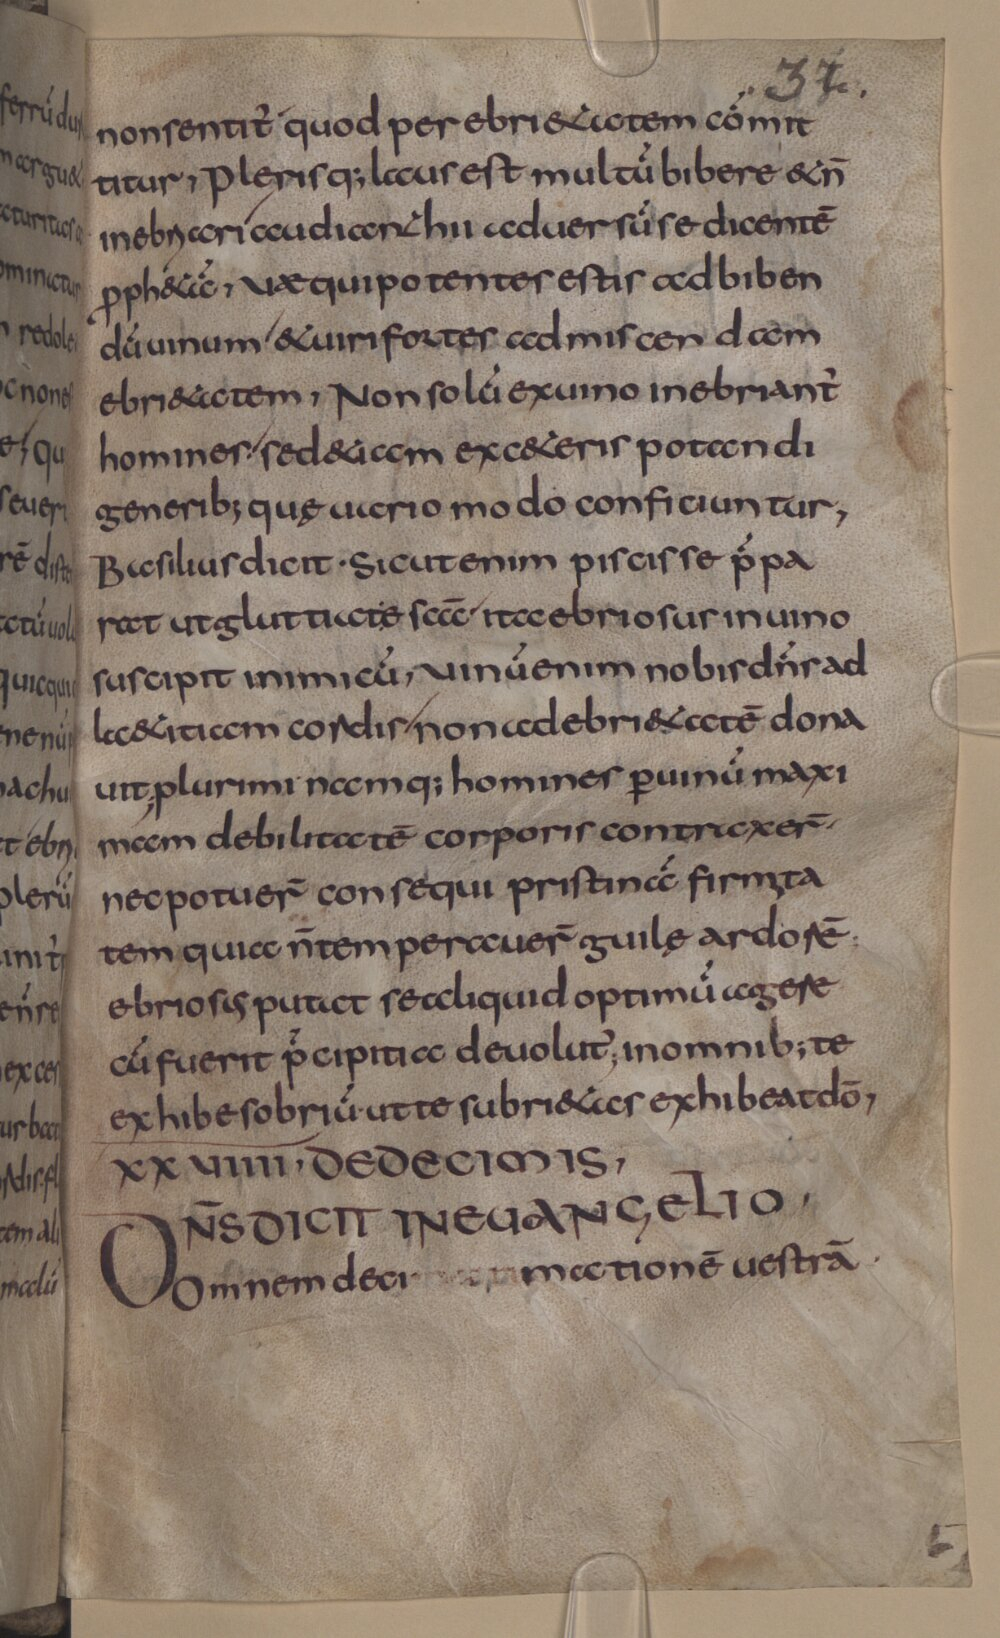 37.
non sentit̄ quod per ebri&atem cōmit
titur, Plerisq; laus est multū bibere & n̄
inebriari audiant hii aduersū se dicentē
p̄ph&ā, væ qui potentes estis ad biben
dū uinum / & uiri fortes ad miscendam
ebri&atem, Non solū ex uino inebriant̄
homines / sed &iam ex c&eris potandi
generib; quę uario modo conficiuntur,
Basilius dicit · Sicut enim piscis se p̄pa
rat ut gluttiat escā / ita ebriosus in uino
suscipit inimicū, Vinū enim nobis dn̄s ad
la&itiam cordis / non ad ebri&atē dona
uit, plurimi namq; homines p̱ uinū maxi
mam debilitatē corporis contraxer̄
nec potuer̄ consequi pristinā firmita
tem quia n̄ temperauer̄ gulę ardorē.
ebriosus putat se aliquid optimū agere
cū fuerit p̄cipitia deuolut̄; in omnib; te
exhibe sobriū. ut te subri&as exhibeat dō,
XXVIIII, DE DECIMIS,
DN̄S DICIT IN EUANGELIO,
Omnem deci mationē uestrā